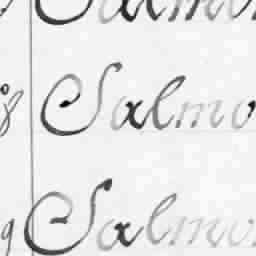 Salmo
8 Salmo
9 Salmo